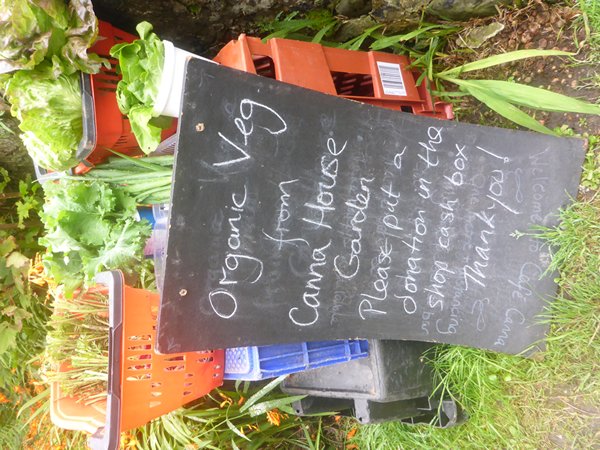 Organic Veg
from
Canna House
Garden
Please put a
donation in the
shop cash box
Thankyou!